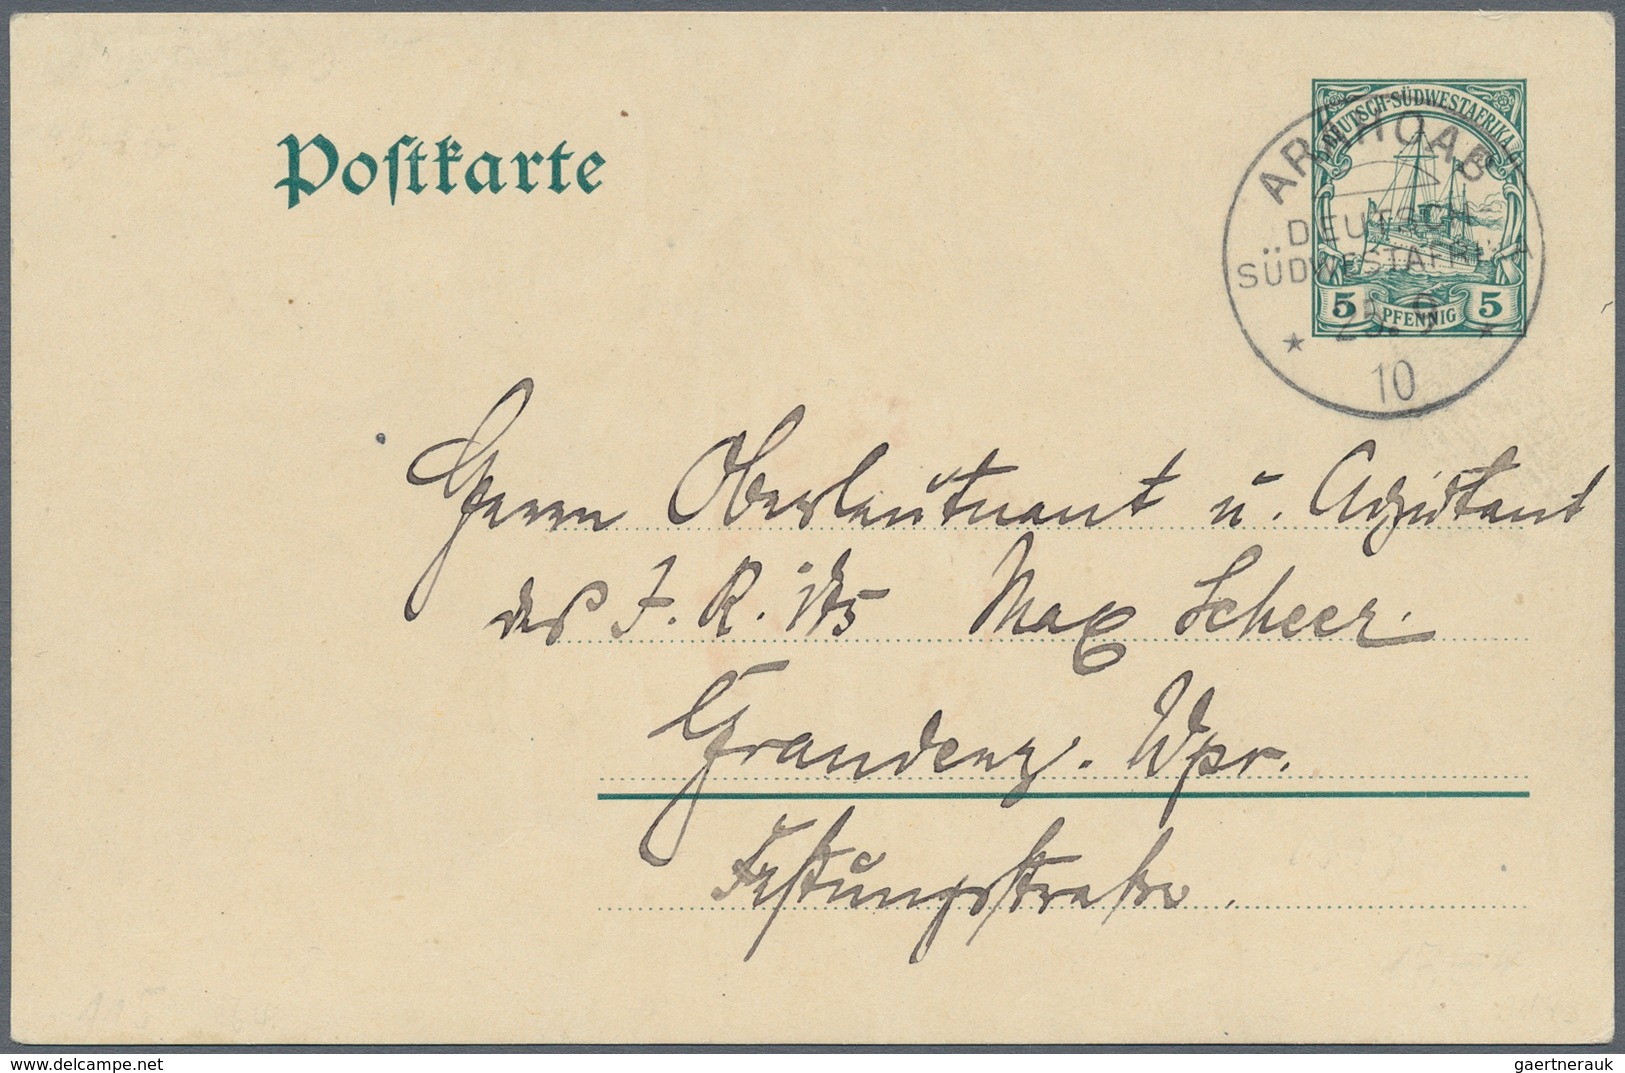 Postkarte
DEUTSCH-SÜDWESTAFRIKA
5 PFENNIG 5
ARAHOAB
DEUTSCH-
SÜDWESTAFRIKA
9
10
Herrn Oberleutnant u. Adjutant
des J. R. 175 Max Scheer.
Graudenz. Wpr.
Festungsstraße.
delcampe.net
gaertnerauk